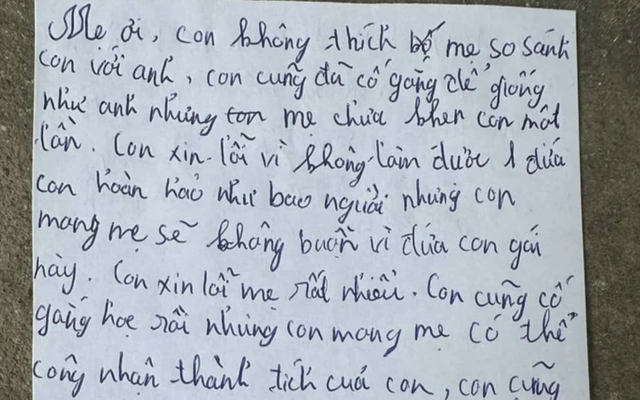 Mẹ ơi, con không thích bố mẹ so sánh
con với anh, con cũng đã cố gắng để giống
như anh nhưng con mẹ chưa khen con một
lần. Con xin lỗi vì không làm được 1 đứa
con hoàn hảo như bao người nhưng con
mong mẹ sẽ không buồn vì đứa con gái
này. Con xin lỗi mẹ rất nhiều. Con cũng cố
gắng học rồi nhưng con mong mẹ có thể
công nhận thành tích của con, con cũng